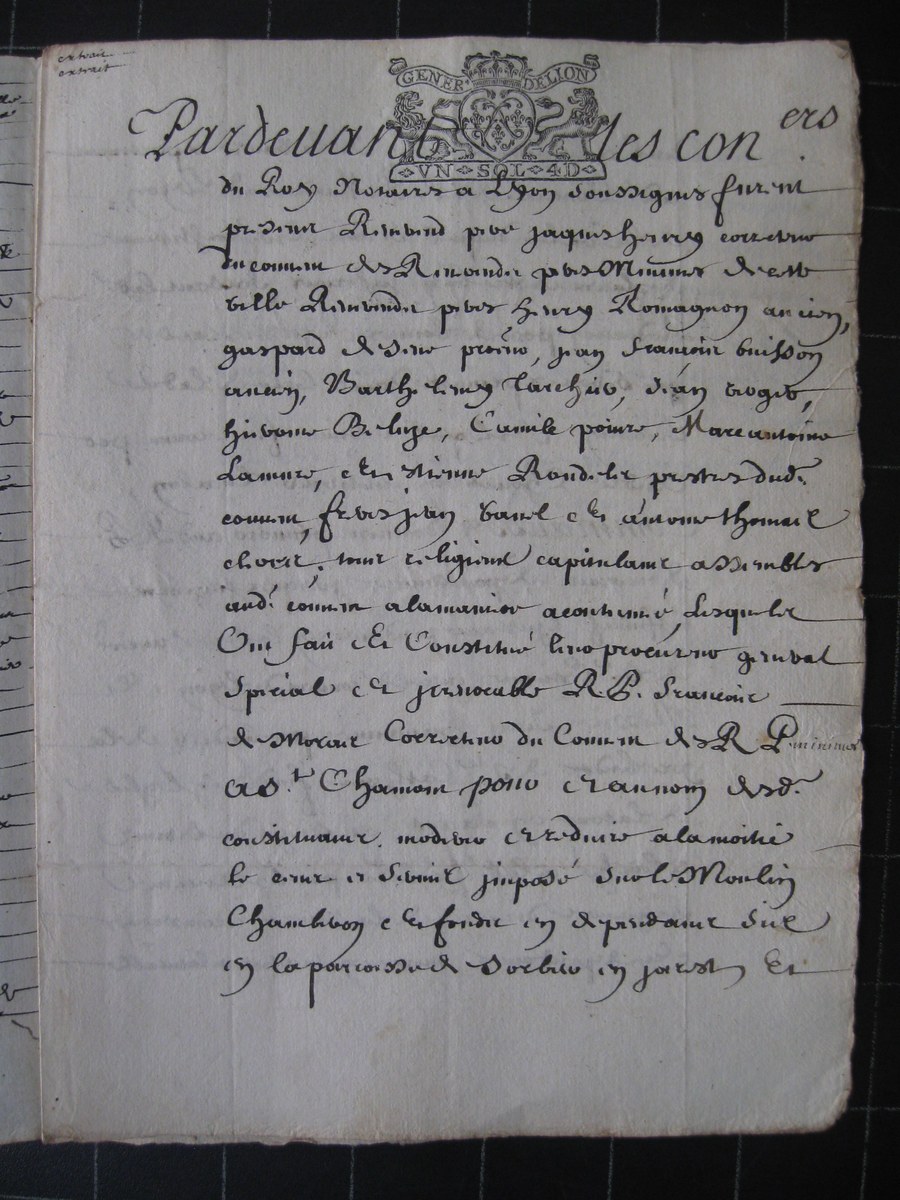 extrait
extrait
GENER DELION
VN SOL 4D
Pardevant les con.ers
du Roy Notaires a Lyon soussignes furent
present Reverend pere Jaques henry correcteur
du couvent des Reverendz peres Minimes de cette
ville Reverendz peres henry Romagnon ancien,
gaspard deserre, jean francois buisson
ancien, Barthelemy, jean roger,
hierome Beluze, Camile poivre, Marc antoine
Lamure, et estienne Rondelet prestres dud.
couvent, freres jean et antoine thomas
clercs, tous religieux capitulans assemblés
aud. couvent a la maniere acoutumé, Lesquels
Ont fait et Constitué leur procureur general
special et jrrevocable R. P. francois
de Correcteur du Couvent des R P minimes
a St Chamont pour et au nom desd.
constituants, moderer et reduire a la moitié
le cens et servis jmposé sur le Moulin
Chambron et fonds en dependants size
en la paroisse de Sorbier en jarest Et